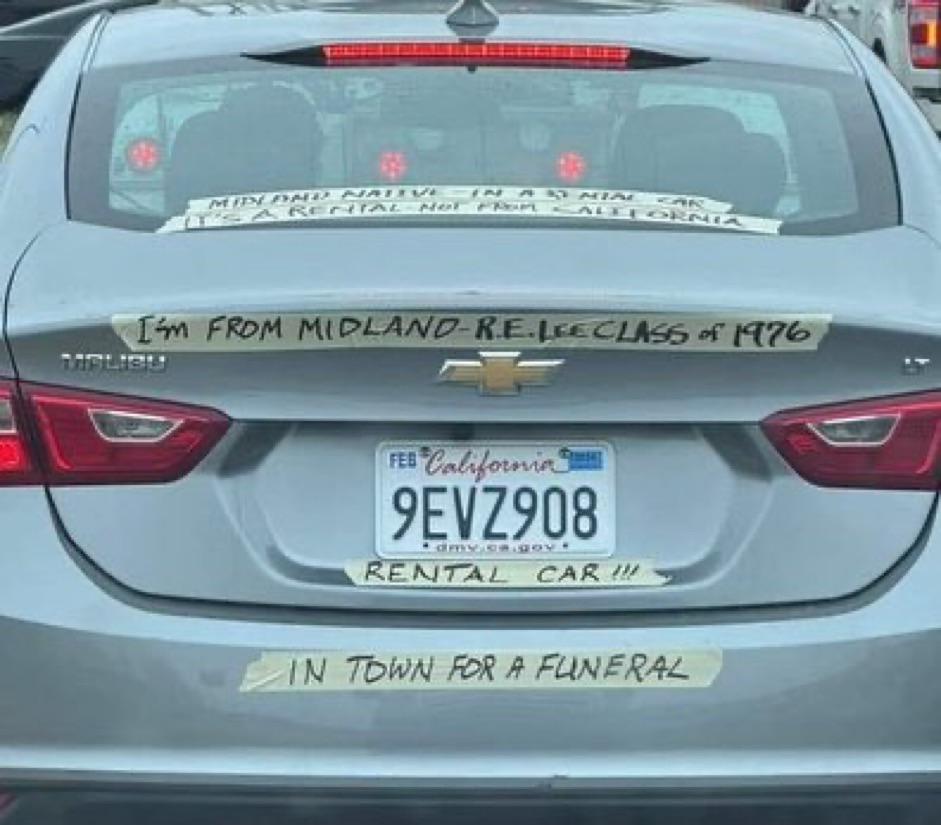 MIDLAND NATIVE - IN A RENTAL CAR
IT'S A RENTAL - NOT FROM CALIFORNIA
I'm FROM MIDLAND - R.E. LEE CLASS of 1976
MALIBU
LT
FEB California
9EVZ908
dmv.ca.gov
RENTAL CAR !!!
IN TOWN FOR A FUNERAL